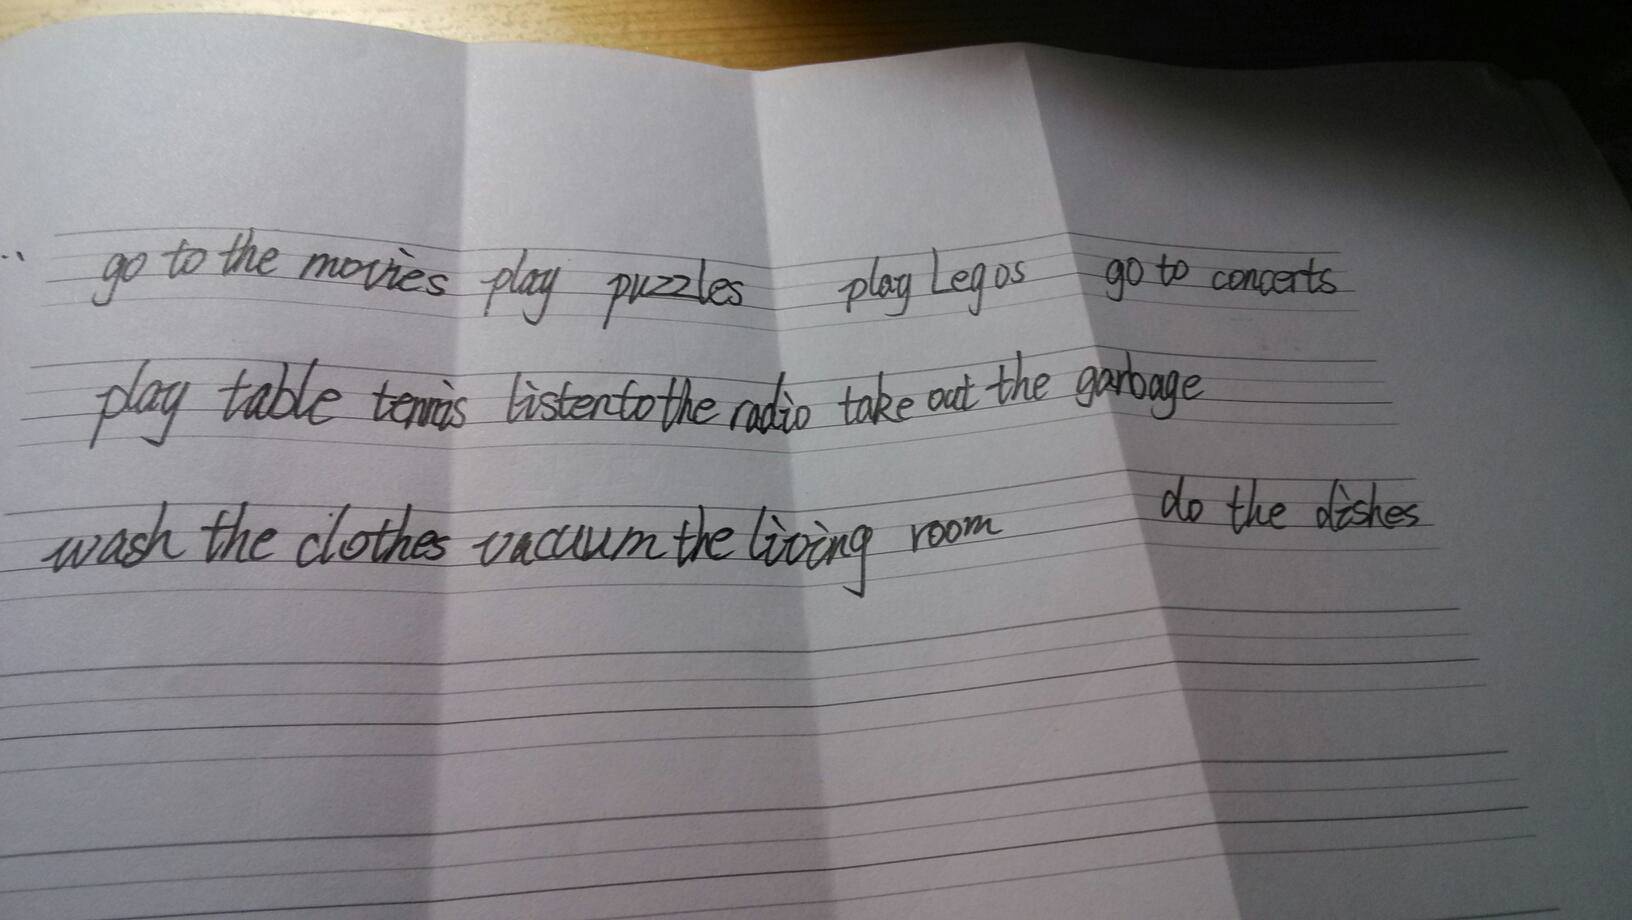 go to the movies play puzzles play Legos go to concerts
play table tennis listen to the radio take out the garbage
wash the clothes vacuum the living room do the dishes